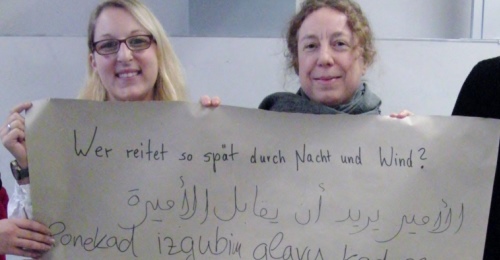 Wer reitet so spät durch Nacht und Wind?
الأمير يريد أن يقابل الأميرة
Ponekad izgubim glavu kad